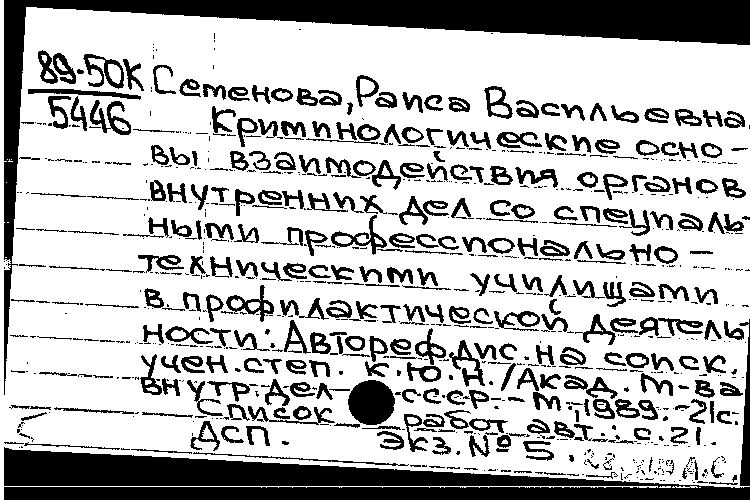 89-50К
5446
Семенова, Раиса Васильевна
Криминологические осно-
вы взаимодействия органов
внутренних дел со специаль-
ными профессионально-
техническими училищами
в профилактической деятель
ности: Автореф.дис. на соиск.
учен.степ. к.ю.н./Акад. м-ва
внутр.дел СССР.- М., 1989.-21с.
Список работ авт.: с.21.
ДСП. Экз.№5.
А.С.